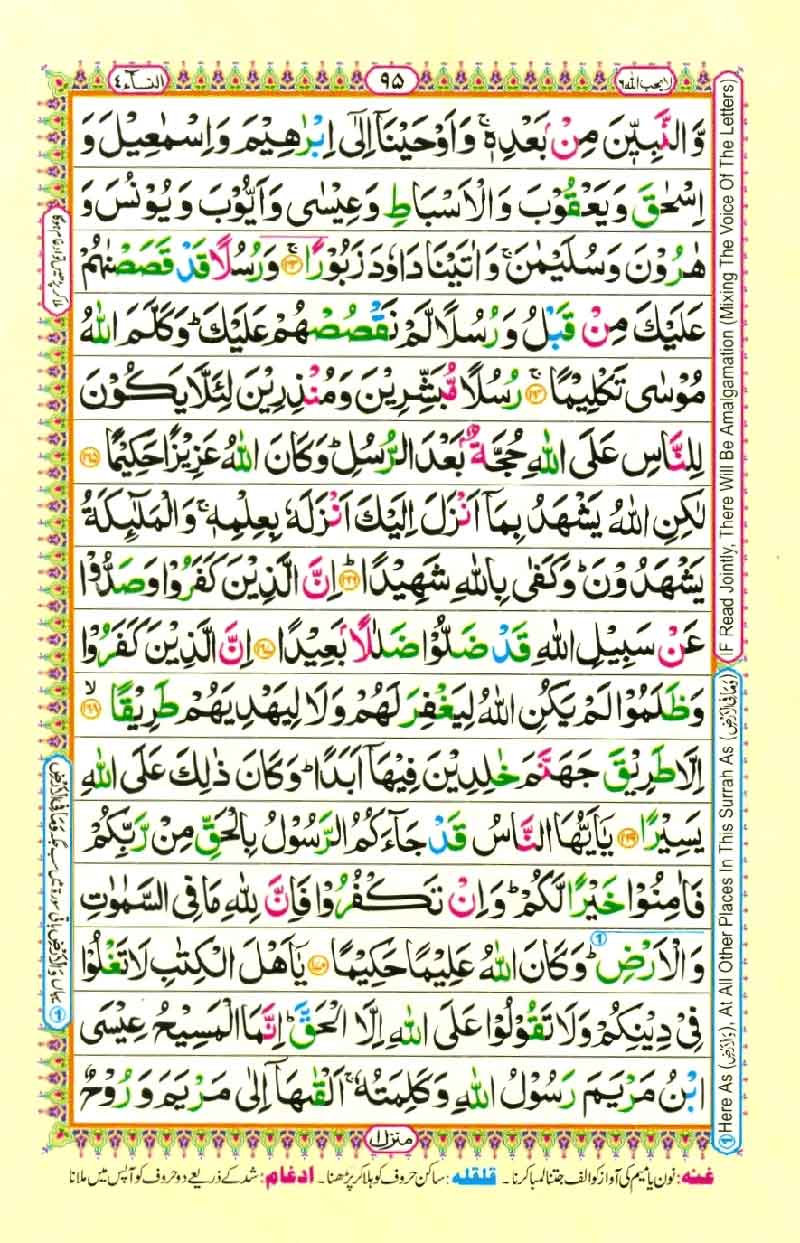 لا یحب اللہ ٦
٩٥
النسآء ٤
وَّالنَّبِيّٖنَ مِنْۢ بَعْدِهٖ ۚ وَاَوْحَيْنَاۤ اِلٰۤى اِبْرٰهِيْمَ وَاِسْمٰعِيْلَ وَ
اِسْحٰقَ وَيَعْقُوْبَ وَالْاَسْبَاطِ وَعِيْسٰى وَاَيُّوْبَ وَيُوْنُسَ وَ
هٰرُوْنَ وَسُلَيْمٰنَ ۚ وَاٰتَيْنَا دَاوٗدَ زَبُوْرًا ۚ ﴿١٦٣﴾ وَرُسُلًا قَدْ قَصَصْنٰهُمْ
عَلَيْكَ مِنْ قَبْلُ وَرُسُلًا لَّمْ نَقْصُصْهُمْ عَلَيْكَ ؕ وَكَلَّمَ اللّٰهُ
مُوْسٰى تَكْلِيْمًا ۚ ﴿١٦٤﴾ رُسُلًا مُّبَشِّرِيْنَ وَمُنْذِرِيْنَ لِئَلَّا يَكُوْنَ
لِلنَّاسِ عَلَى اللّٰهِ حُجَّةٌۢ بَعْدَ الرُّسُلِ ؕ وَكَانَ اللّٰهُ عَزِيْزًا حَكِيْمًا ﴿١٦٥﴾
لٰكِنِ اللّٰهُ يَشْهَدُ بِمَاۤ اَنْزَلَ اِلَيْكَ اَنْزَلَهٗ بِعِلْمِهٖ ۚ وَالْمَلٰٓئِكَةُ
يَشْهَدُوْنَ ؕ وَكَفٰى بِاللّٰهِ شَهِيْدًا ؕ ﴿١٦٦﴾ اِنَّ الَّذِيْنَ كَفَرُوْا وَصَدُّوْا
عَنْ سَبِيْلِ اللّٰهِ قَدْ ضَلُّوْا ضَلٰلًۢا بَعِيْدًا ﴿١٦٧﴾ اِنَّ الَّذِيْنَ كَفَرُوْا
وَظَلَمُوْا لَمْ يَكُنِ اللّٰهُ لِيَغْفِرَ لَهُمْ وَلَا لِيَهْدِيَهُمْ طَرِيْقًا ۙ ﴿١٦٨﴾
اِلَّا طَرِيْقَ جَهَنَّمَ خٰلِدِيْنَ فِيْهَاۤ اَبَدًا ؕ وَكَانَ ذٰلِكَ عَلَى اللّٰهِ
يَسِيْرًا ﴿١٦٩﴾ يٰۤاَيُّهَا النَّاسُ قَدْ جَآءَكُمُ الرَّسُوْلُ بِالْحَقِّ مِنْ رَّبِّكُمْ
فَاٰمِنُوْا خَيْرًا لَّكُمْ ؕ وَاِنْ تَكْفُرُوْا فَاِنَّ لِلّٰهِ مَا فِى السَّمٰوٰتِ
وَالْاَرْضِ ؕ وَكَانَ اللّٰهُ عَلِيْمًا حَكِيْمًا ﴿١٧٠﴾ يٰۤاَهْلَ الْكِتٰبِ لَا تَغْلُوْا
فِىْ دِيْنِكُمْ وَلَا تَقُوْلُوْا عَلَى اللّٰهِ اِلَّا الْحَقَّ ؕ اِنَّمَا الْمَسِيْحُ عِيْسَى
ابْنُ مَرْيَمَ رَسُوْلُ اللّٰهِ وَكَلِمَتُهٗ ۚ اَلْقٰىهَاۤ اِلٰى مَرْيَمَ وَرُوْحٌ
منزل ١
(IF Read Jointly, There Will Be Amalgamation (Mixing The Voice Of The Letters)
Here As (وَمَا فِی الْاَرْضِ), At All Other Places In This Surrah As (وَالْاَرْضِ)
غنہ: نون یا میم کی آواز کو الف جتنا لمبا کرنا۔ قلقلہ: ساکن حروف کو ہلا کر پڑھنا۔ ادغام: شد کے ذریعے دو حروف کو آپس میں ملانا